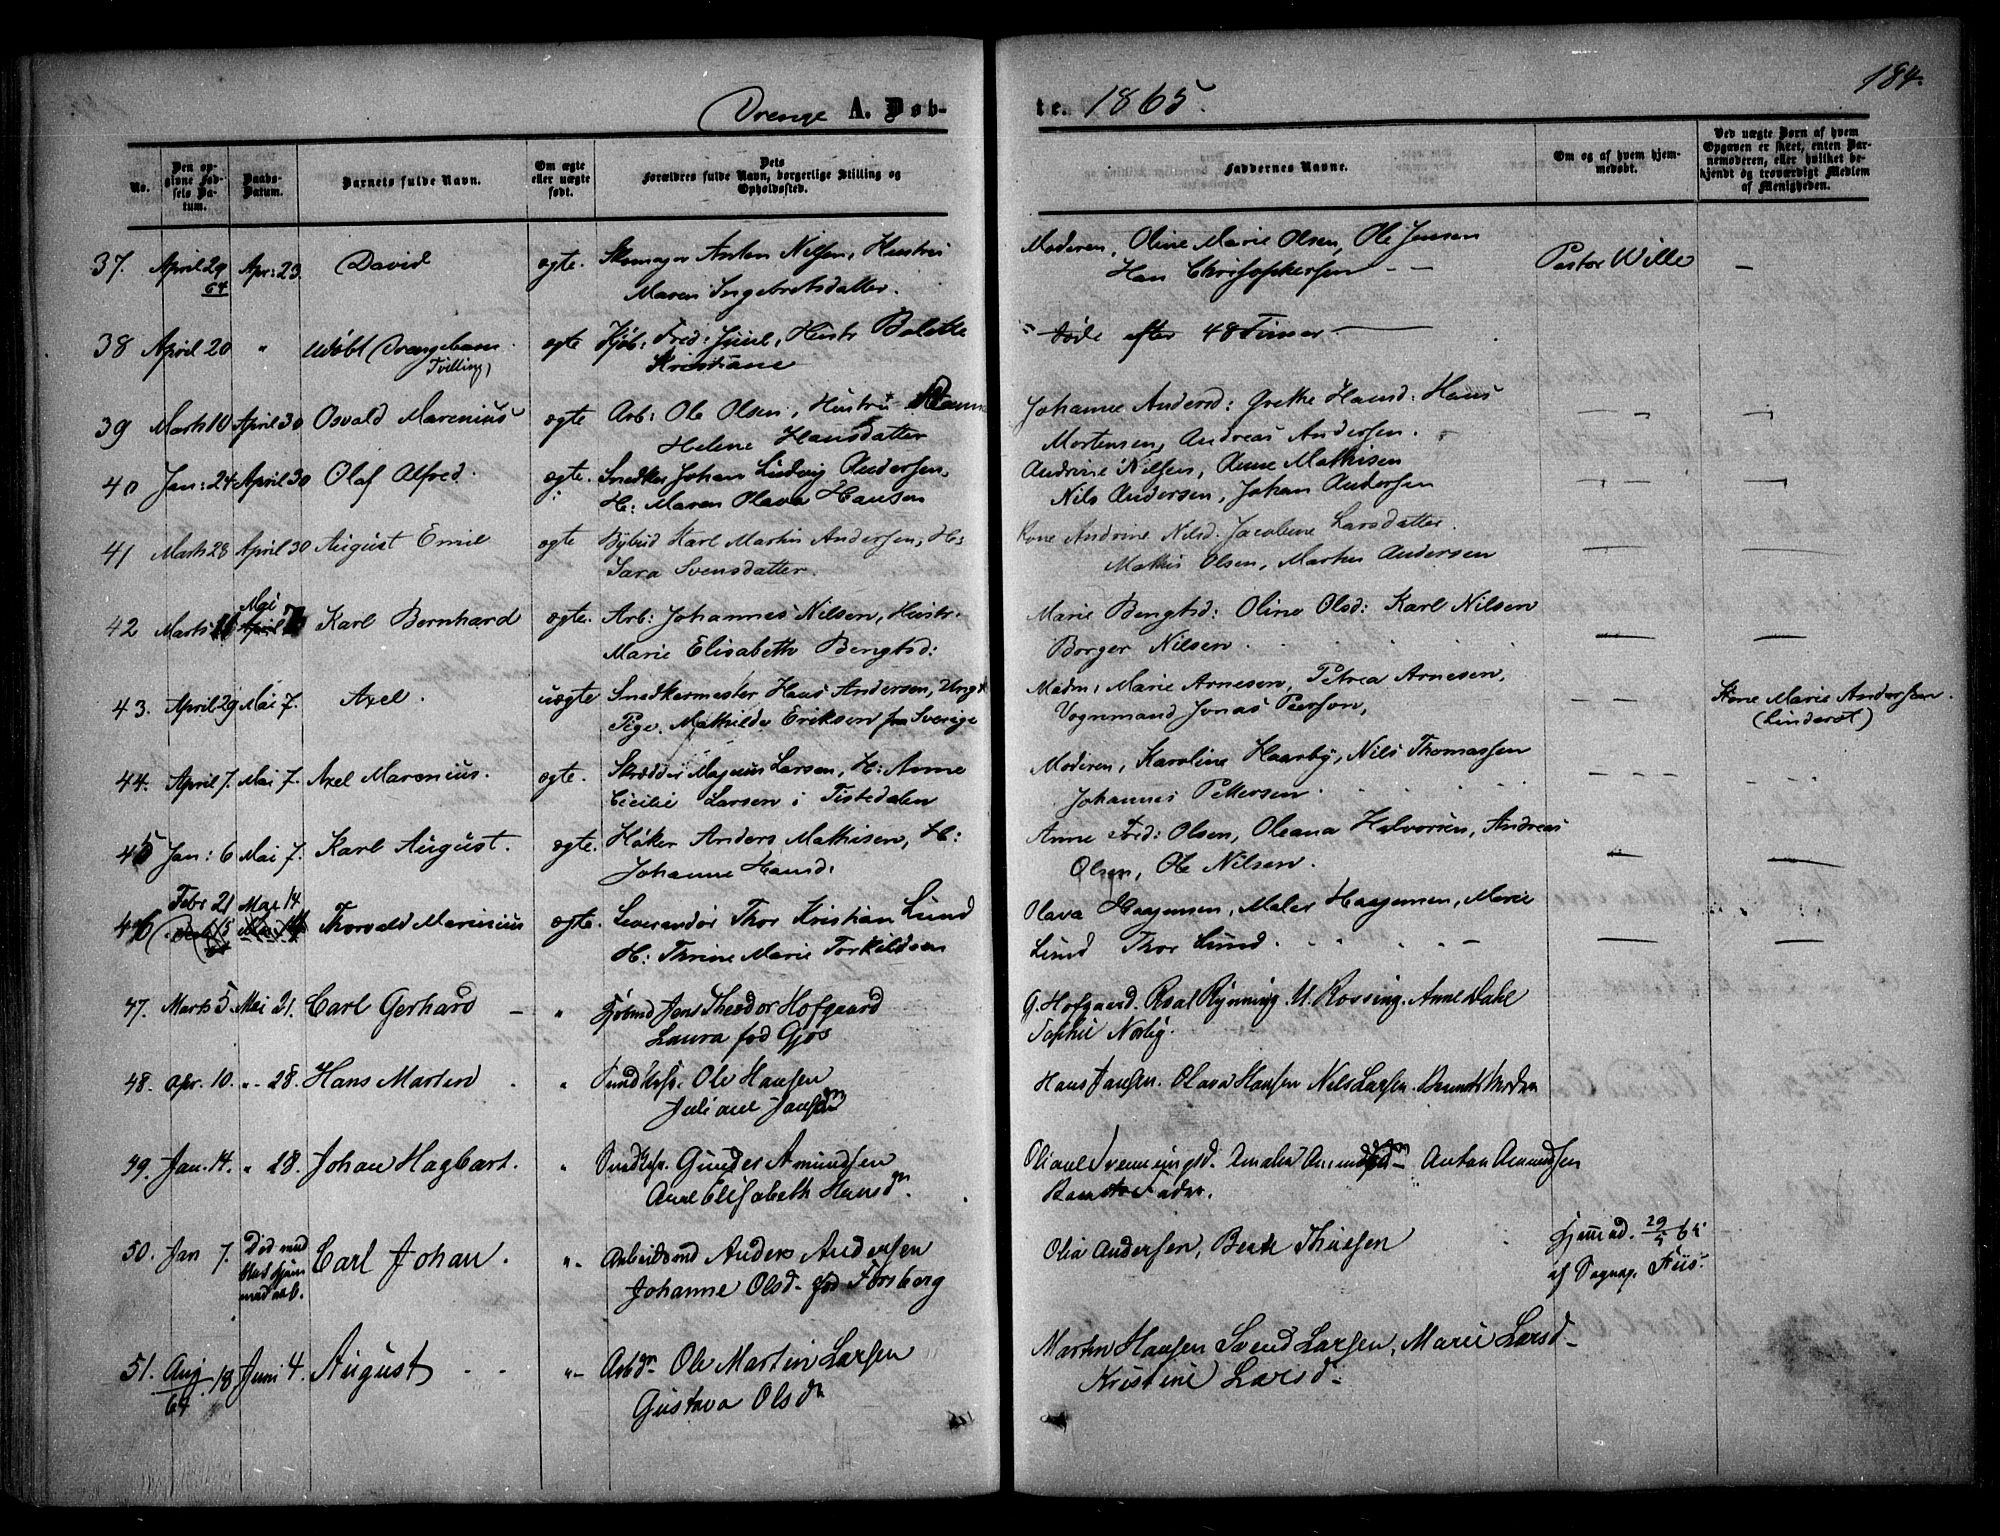 184.
Drenge A. Døb-
te. 1865.
No.
Den opgivne Fødsels Datum.
Daabs-Datum.
Barnets fulde Navn.
Om ægte eller uægte født.
Dets Forældres fulde Navn, borgerlige Stilling og Opholdssted.
Faddernes Navne.
Om og af hvem hjemmedøbt.
Ved uægte Børn af hvem Opgaven er skeet, enten Barnemoderen, eller hvilket bekjendt og troværdigt Medlem af Menigheden.
37. April 29 64 Apr: 23. David ægte. Skomager Anton Nilsen, Hustru Moderen, Oline Marie Olsen, Ole Jensen Pastor Wille —
Maren Ingebretsdatter. Han Christophersen — —
38 April 20 " udøbt Drengebarn ægte Kjøb: Fred: Juul, Hustr Bolette " døde efter 48 Timer —
Tvilling) Kristiane
39 Marts 10 April 30 Osvald Marenius ægte Arb: Ole Olsen, Hustru Johanne Andersd: Grethe Hansd: Hans
Helene Hansdatter Mortensen, Andreas Andersen.
40 Jan: 24 April 30 Olaf Alfred. ægte. Snedker Johan Ludvig Andersen, Andrine Nilsen, Anne Mathisen
H: Maren Olava Hansen Nils Andersen, Johan Andersen
41 Marts 28 April 30 August Emil ægte Bybud Karl Martin Andersen, H: Kone Andrine Nilsd: Jacobine Larsdatter
Sara Svensdatter. Mathis Olsen, Martin Andersen
42 Marts Mai April 7 Karl Bernhard ægte. Arb: Johannes Nilsen, Hustr. Marie Bengtsd: Oline Olsd: Karl Nilsen
Marie Elisabeth Bengtsd: Borger Nilsen.
43. April 29 Mai 7. Axel. uægte Snedkermester Hans Andersen, Ung Madm: Marie Arnesen, Petrea Arnesen, Kone Marie Andersen
Pige. Mathilde Eriksen fra Sverige Vognmand Jonas Peerson, (Linderot)
44. April 7. Mai 7. Axel Marenius. ægte. Skrædder Magnus Larsen, H: Anne Moderen, Karoline Haarby, Nils Thomassen
Cicilie Larsen i Tistedalen Johannes Pettersen.
45 Jan: 6 Mai 7. Karl August. ægte. Høker Anders Mathisen, H: Anne Fred: Olsen, Oleana Halvorsen, Andreas
Johanne Hansd: Olsen, Ole Nilsen.
46 Febr 21 Mai 14 Thorvald Marinius ægte. Leverandør Thor Kristian Lund Olava Haagensen, Haagensen, Marie
H: Thrine Marie Torkildsen Lund Thor Lund.
47. Marts 5. Mai 21. Carl Gerhard — " Kjøbmd Jens Theodor Hofgaard G. Hofgaard. Roal Rynning. M. Rossing. Anne Dahl
Laura fød Gjøs Sophie
48. Apr. 10. " 28. Hans Martin " Ole Hansen Hans Jansen. Olava Hansen Nils Larsen.
Juliane
49. Jan. 14. " 28. Johan Hagbart. " Gunder Amundsen Oliane Svenningsd. Amalia Anton Amundsen
Ane Elisabeth Hansdr. Barnets Fader.
50. Jan 7. Død med Carl Johan. " Arbeidsmd Anders Andersen Olia Andersen, Berte Thuesen Hjemmed. 29/5 65
Johanne Olsd. fød Forsberg af Sognep. Fiis.
51. Aug 64 18 Juni 4. August — " Arbdr. Ole Martin Larsen Martin Hansen Svend Larsen, Marie Larsd.
Gustava Olsdr Kristine Larsd.